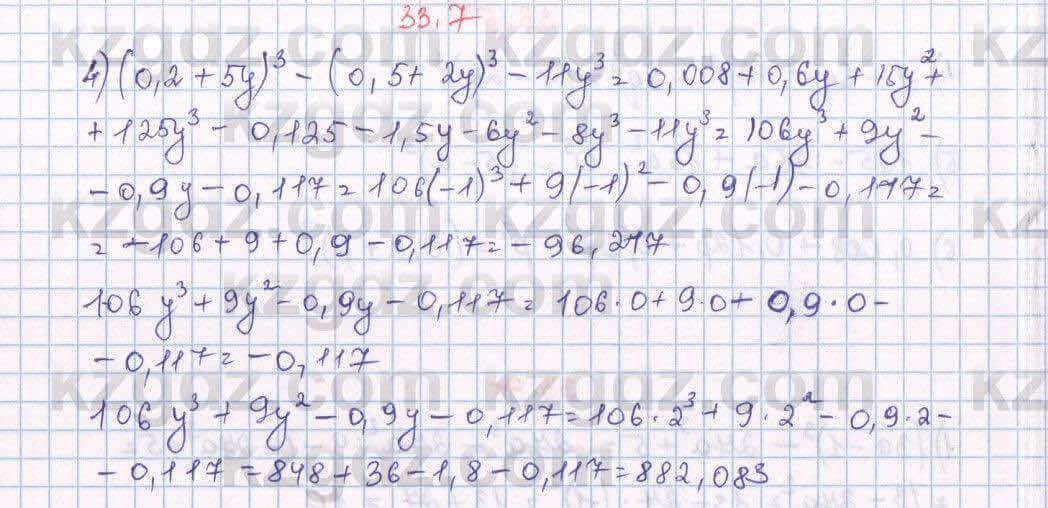 33.7
4) (0,2 + 5y)³ - (0,5 + 2y)³ - 11y³ = 0,008 + 0,6y + 15y² +
+ 125y³ - 0,125 - 1,5y - 6y² - 8y³ - 11y³ = 106y³ + 9y² -
- 0,9y - 0,117 = 106(-1)³ + 9(-1)² - 0,9(-1) - 0,117 =
= -106 + 9 + 0,9 - 0,117 = - 96,217
106y³ + 9y² - 0,9y - 0,117 = 106·0 + 9·0 + 0,9·0 -
- 0,117 = - 0,117
106y³ + 9y² - 0,9y - 0,117 = 106·2³ + 9·2² - 0,9·2 -
- 0,117 = 848 + 36 - 1,8 - 0,117 = 882,083
kzgdz.com